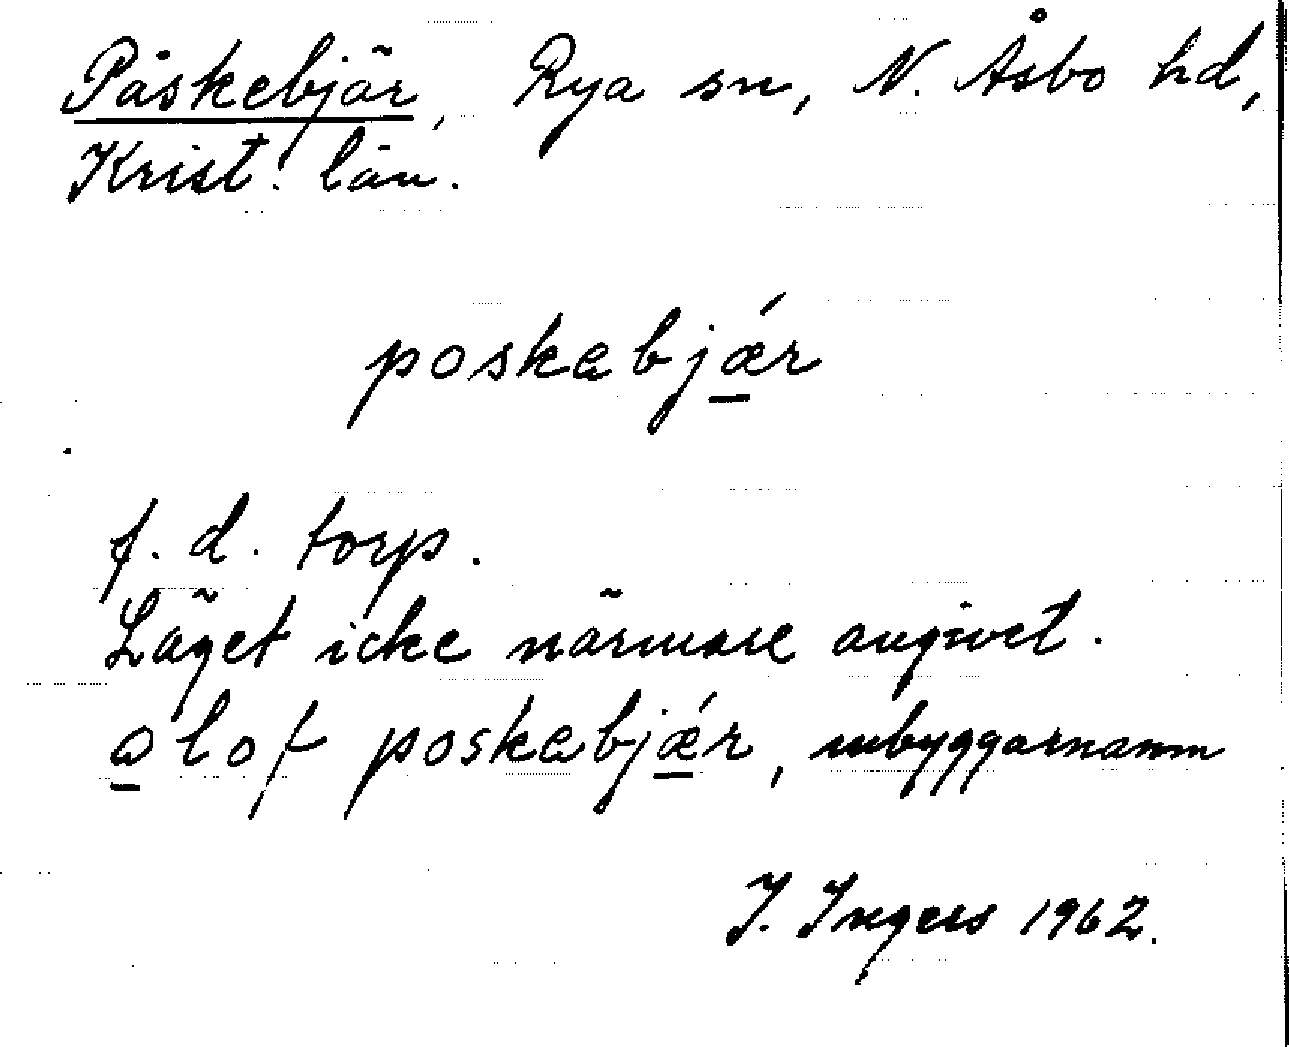 Påskebjär, Rya sn, N. Åsbo hd,
Krist. län.
poskabjǽr
f. d. torp.
Läget icke närmare angivet.
olof poskabjǽr, inbyggarnamn
I. Ingers 1962.